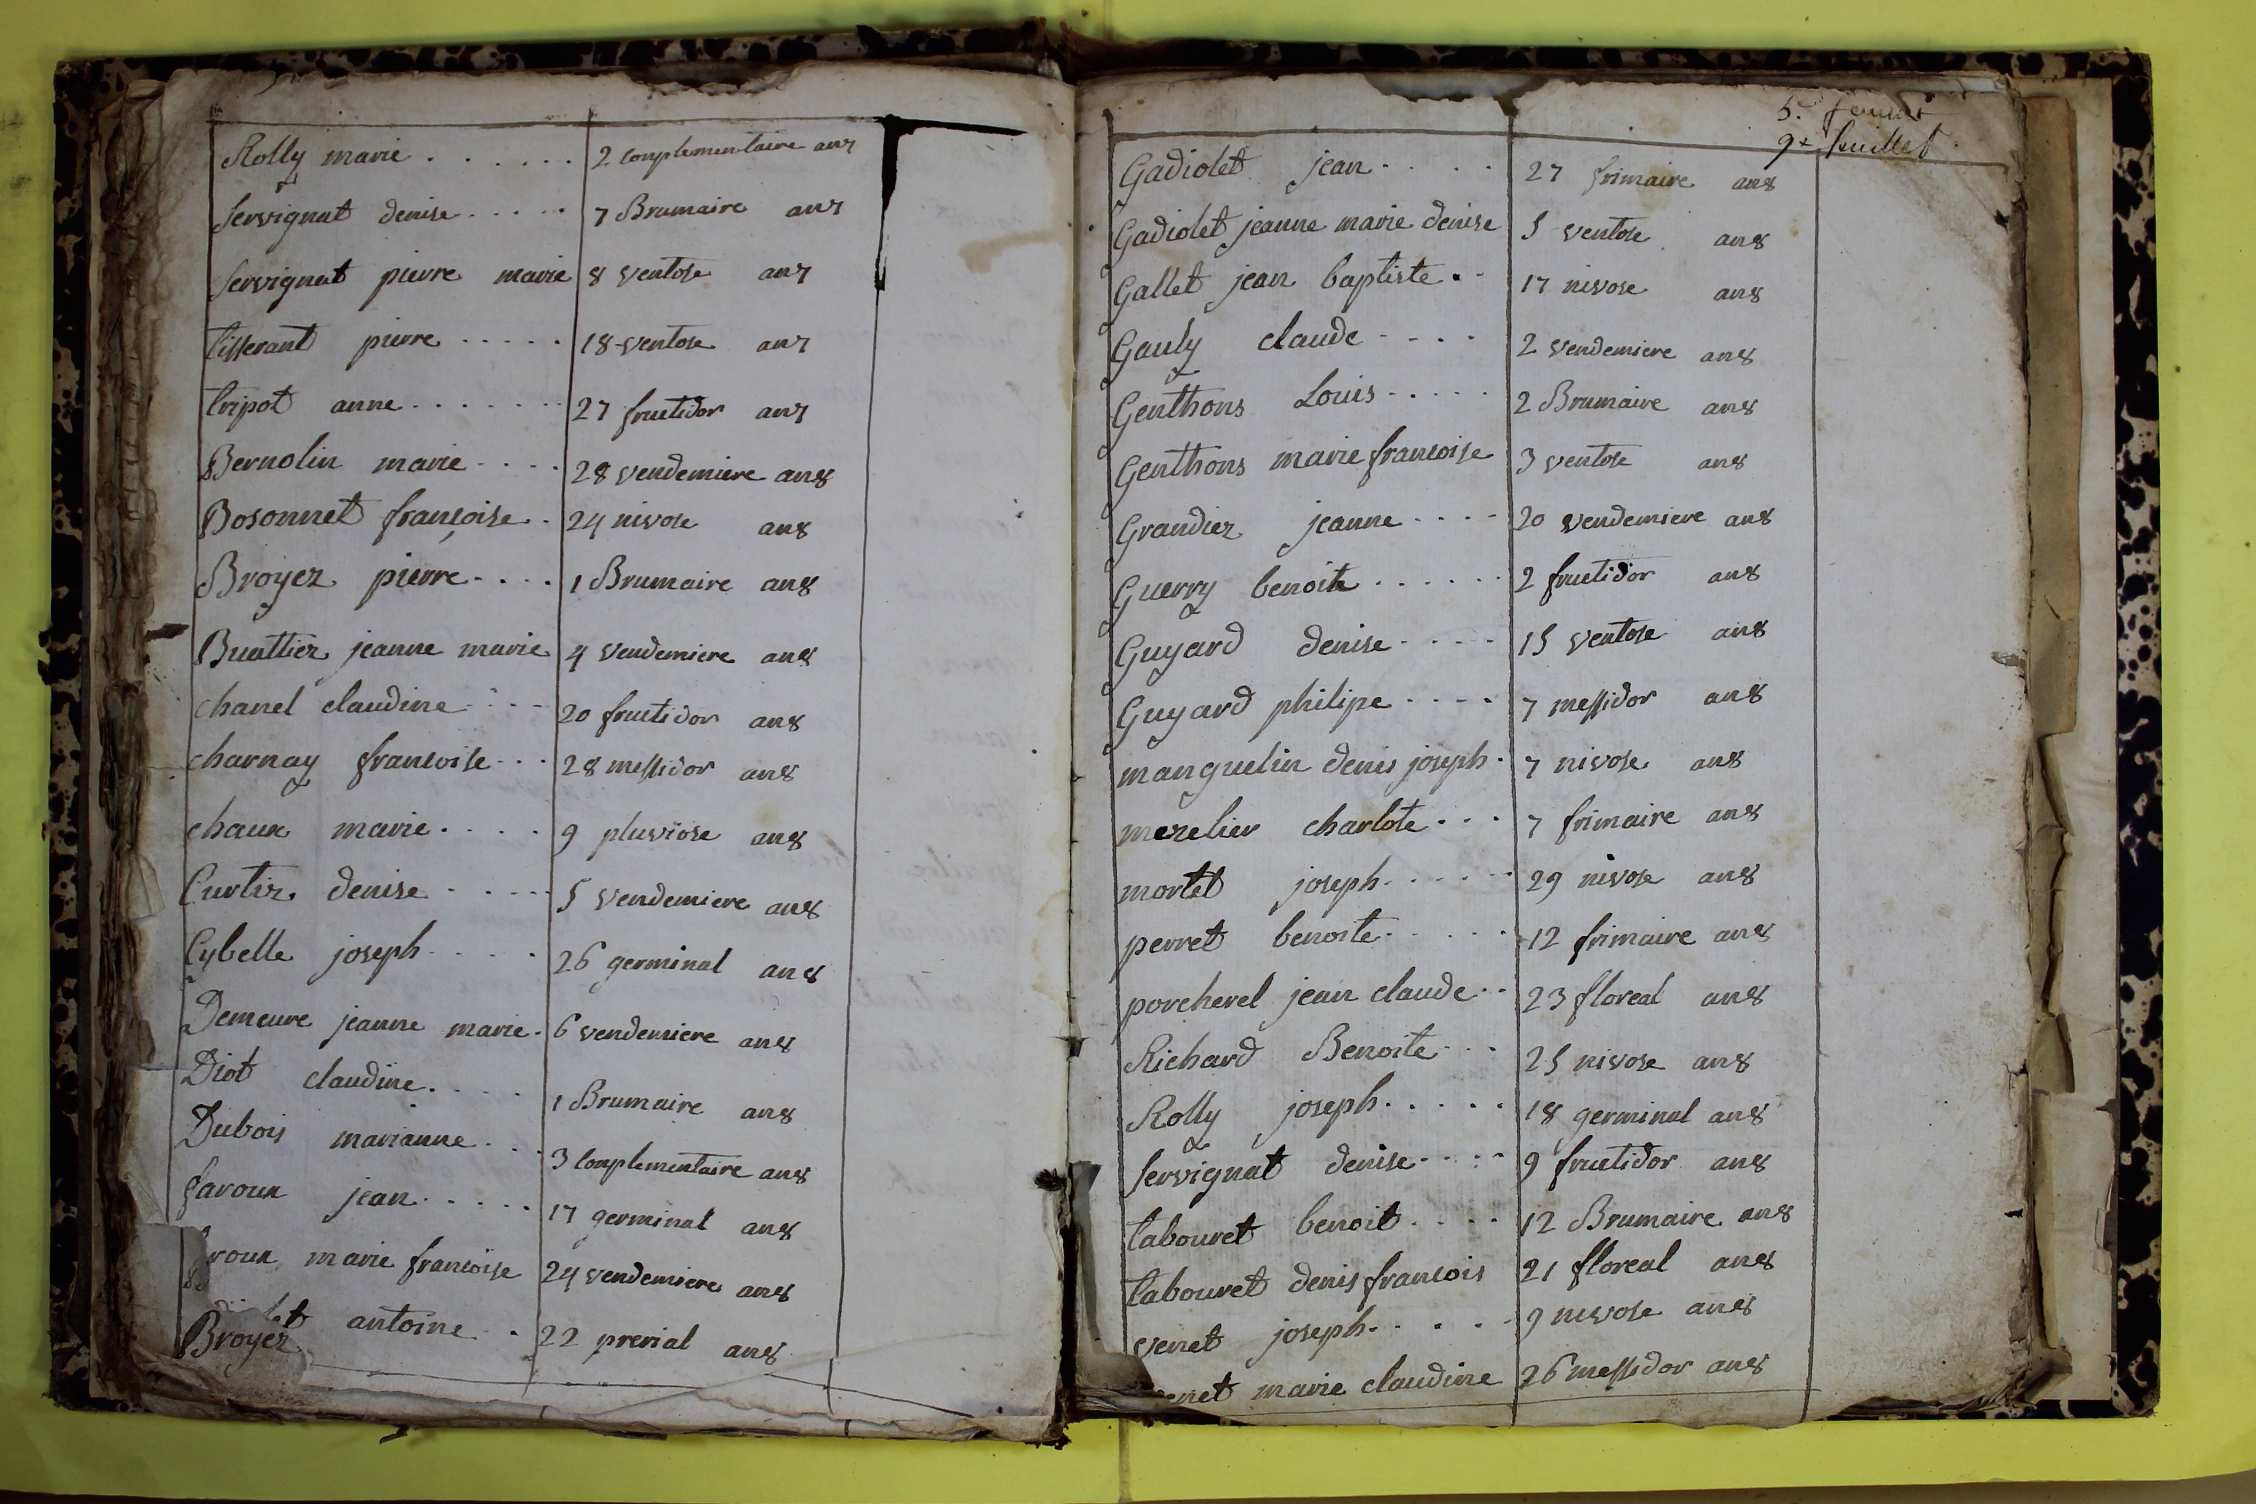 Rolly marie . . . . . . 2 complementaire an 7
Servignat denise . . . . . 7 Brumaire an 7
Servignat pierre marie 8 ventose an 7
tisserant pierre . . . . . 18 ventose an 7
tripot anne . . . . . . . 27 fructidor an 7
Bernolin marie . . . . 28 vendemiere an 8
Bosonnet françoise . 24 nivose an 8
Broyez pierre . . . . 1 Brumaire an 8
Buattier jeanne marie 4 vendemiere an 8
chanel claudine . . . 20 fructidor an 8
charnay francoise . . . 28 messidor an 8
chaux marie . . . . 9 pluviose an 8
Curtiz denise . . . . . 5 vendemiere an 8
Cybelle joseph . . . . 26 germinal an 8
Demeure jeanne marie . 6 vendemiere an 8
Diot claudine . . . . 1 Brumaire an 8
Dubois marianne . . . 3 complementaire an 8
faroux jean . . . . . 17 germinal an 8
roux marie francoise 24 vendemiere an 8
antoine . . 22 prerial an 8
Broyez
5e feuillet
9e feuillet
Gadiolet jean . . . . 27 frimaire an 8
Gadiolet jeanne marie denise 5 ventose an 8
Gallet jean baptiste . . 17 nivose an 8
Gauly claude . . . . 2 vendemiere an 8
Genthons Louis . . . . . 2 Brumaire an 8
Genthons marie francoise 3 ventose an 8
Grandiez jeanne . . . . 20 vendemiere an 8
Guerry benoite . . . . . . 2 fructidor an 8
Guyard denise . . . . 15 ventose an 8
Guyard philipe . . . . 7 messidor an 8
manguelin denis joseph . 7 nivose an 8
merelier charlote . . . 7 frimaire an 8
mortel joseph . . . . . . 29 nivose an 8
perret benoite . . . . . 12 frimaire an 8
porcherel jean claude . . 23 floreal an 8
Richard Benoite . . . 25 nivose an 8
Rolly joseph . . . . . 18 germinal an 8
Servignat denise . . . . 9 fructidor an 8
tabouret benoit . . . . 12 Brumaire an 8
tabouret denis francois 21 floreal an 8
venet joseph . . . . . 9 nivose an 8
enet marie claudine 26 messidor an 8